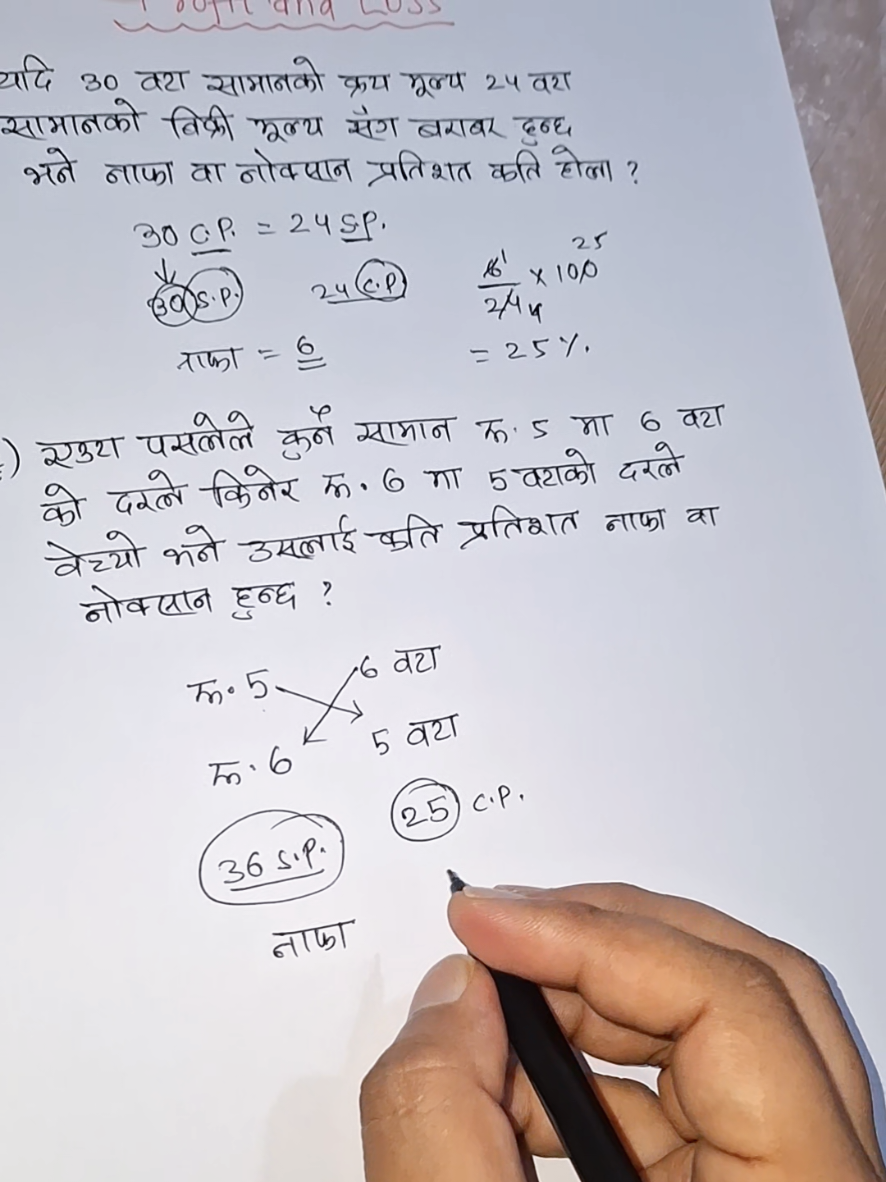 Profit and Loss
यदि 30 वटा सामानको क्रय मूल्य 24 वटा
सामानको बिक्री मूल्य सँग बराबर हुन्छ
भने नाफा वा नोक्सान प्रतिशत कति होला ?
30 C.P. = 24 S.P.
30 S.P. 24 C.P
6/24 × 100
1 4 25
नाफा = 6 = 25 %.
) एउटा पसलेले कुनै सामान रू. 5 मा 6 वटा
को दरले किनेर रू. 6 मा 5 वटाको दरले
वेच्यो भने उसलाई कति प्रतिशत नाफा वा
नोक्सान हुन्छ ?
रू. 5 6 वटा
रू. 6 5 वटा
36 S.P. 25 C.P.
नाफा